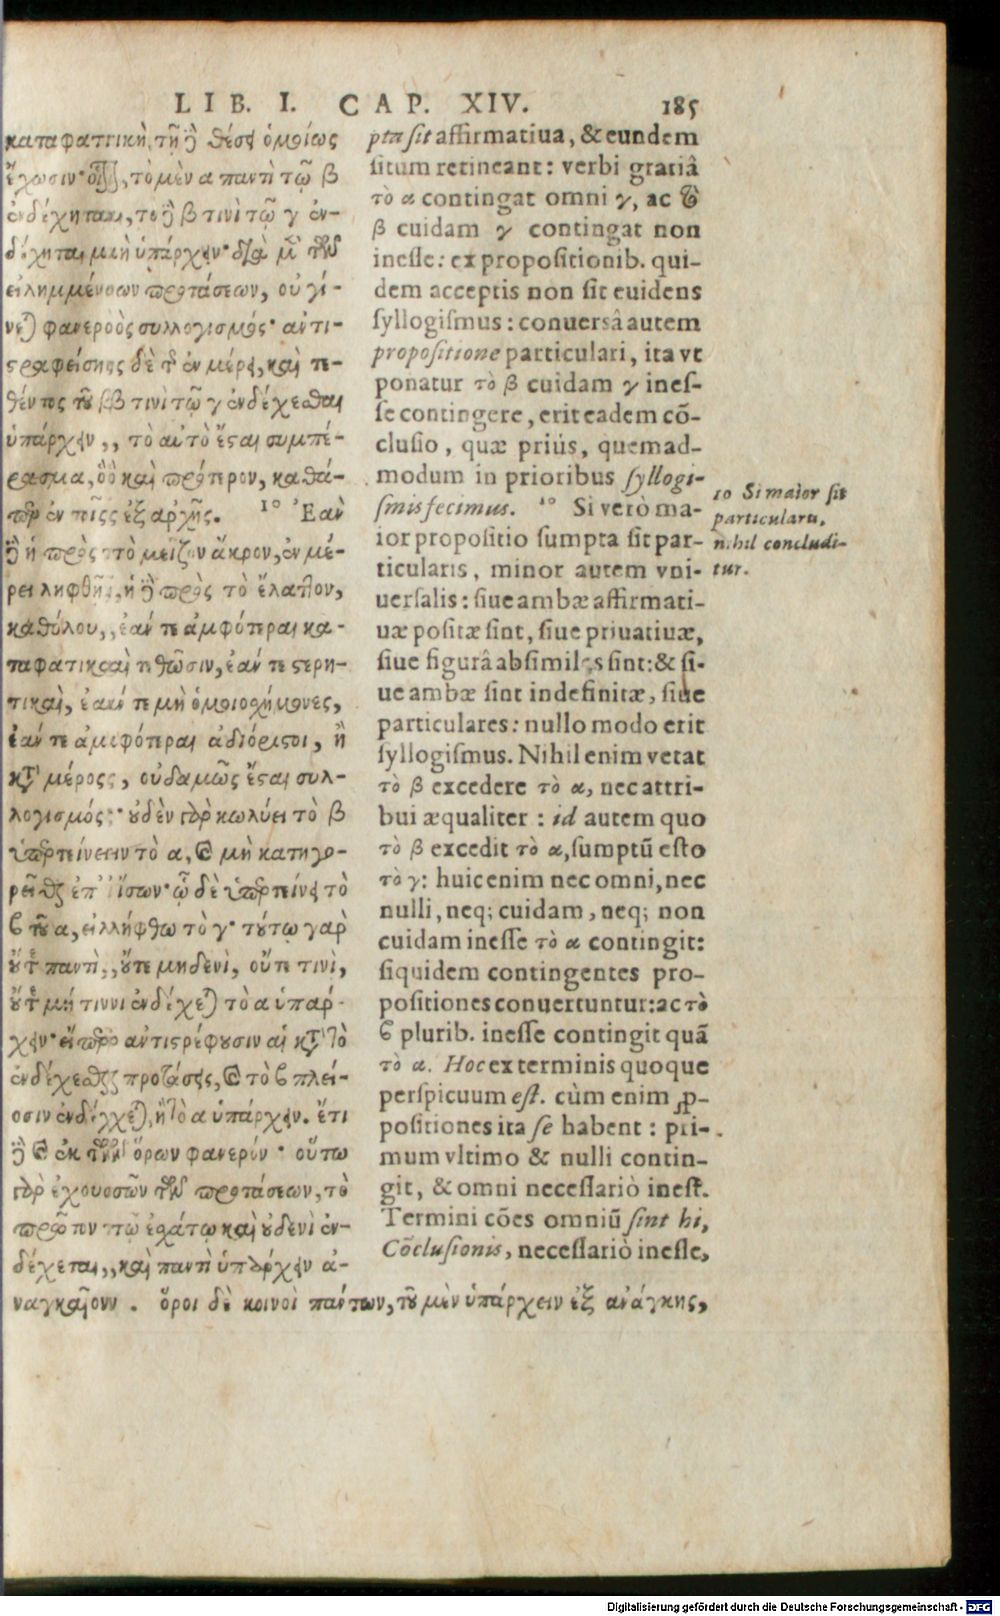 LIB. I. CAP. XIV. 185
καταφατικὴ, τῇ δὲ θέσει ὁμοίως
ἔχωσιν· οἷον, τὸ μὲν α παντὶ τῷ β
ἐνδέχηται, τὸ δὲ β τινὶ τῷ γ ἐν-
δέχηται μὴ ὑπάρχειν· διὰ μὲν τῶν
εἰλημμένων προτάσεων, οὐ γί-
νεται φανερὸς συλλογισμός· ἀντι-
στραφείσης δὲ τῆς ἐν μέρει, καὶ τε-
θέντος τοῦ β τινὶ τῷ γ ἐνδέχεσθαι
ὑπάρχειν, τὸ αὐτὸ ἔσται συμπέ-
ρασμα, ὃ καὶ πρότερον, καθά-
περ ἐν τοῖς ἐξ ἀρχῆς. 10 Ἐὰν
δὲ ἡ πρὸς τὸ μεῖζον ἄκρον, ἐν μέ-
ρει ληφθῇ, ἡ δὲ πρὸς τὸ ἔλαττον,
καθόλου, ἐάν τε ἀμφότεραι κα-
ταφατικαὶ τεθῶσιν, ἐάν τε στερη-
τικαὶ, ἐάν τε μὴ ὁμοιοσχήμονες,
ἐάν τε ἀμφότεραι ἀδιόριστοι, ἢ
κατὰ μέρος, οὐδαμῶς ἔσται συλ-
λογισμός· οὐδὲν γὰρ κωλύει τὸ β
ὑπερτείνειν τὸ α, καὶ μὴ κατηγο-
ρεῖσθαι ἐπ' ἴσων· ᾧ δὲ ὑπερτείνει τὸ
β τοῦ α, εἰλήφθω τὸ γ· τούτῳ γὰρ
οὔτε παντὶ, οὔτε μηδενὶ, οὔτε τινὶ,
οὔτε μή τινι ἐνδέχεται τὸ α ὑπάρ-
χειν· εἴπερ ἀντιστρέφουσιν αἱ κατὰ τὸ
ἐνδέχεσθαι προτάσεις, καὶ τὸ β πλεί-
οσιν ἐνδέχεται, ἢ τὸ α ὑπάρχειν. ἔτι
δὲ καὶ ἐκ τῶν ὅρων φανερόν· οὕτω
γὰρ ἐχουσῶν τῶν προτάσεων, τὸ
πρῶτον τῷ ἐσχάτῳ καὶ οὐδενὶ ἐν-
δέχεται, καὶ παντὶ ὑπάρχειν ἀ-
ναγκαῖον. ὅροι δὲ κοινοὶ πάντων, τοῦ μὲν ὑπάρχειν ἐξ ἀνάγκης,
pta sit affirmatiua, & eundem
situm retineant: verbi gratiâ
τὸ α contingat omni γ, ac τὸ
β cuidam γ contingat non
inesse: ex propositionib. qui-
dem acceptis non fit euidens
syllogismus: conuersâ autem
propositione particulari, ita vt
ponatur τὸ β cuidam γ ines-
se contingere, erit eadem cō-
clusio, quæ priùs, quemad-
modum in prioribus syllogi-
smis fecimus. 10 Si verò ma-
ior propositio sumpta sit par-
ticularis, minor autem vni-
uersalis: siue ambæ affirmati-
uæ positæ sint, siue priuatiuæ,
siue figurâ absimiles sint: & si-
ue ambæ sint indefinitæ, siue
particulares: nullo modo erit
syllogismus. Nihil enim vetat
τὸ β excedere τὸ α, nec attri-
bui æqualiter: id autem quo
τὸ β excedit τὸ α, sumptū esto
τὸ γ: huic enim nec omni, nec
nulli, neq; cuidam, neq; non
cuidam inesse τὸ α contingit:
siquidem contingentes pro-
positiones conuertuntur: ac τὸ
β plurib. inesse contingit quā
τὸ α. Hoc ex terminis quoque
perspicuum est. cùm enim ꝓ-
positiones ita se habent: pri-
mum vltimo & nulli contin-
git, & omni necessariò inest.
Termini cōes omniū sint hi,
Cōclusionis, necessariò inesse,
10 Si maior sit
particularis,
nihil concludi-
tur.
Digitalisierung gefördert durch die Deutsche Forschungsgemeinschaft - DFG